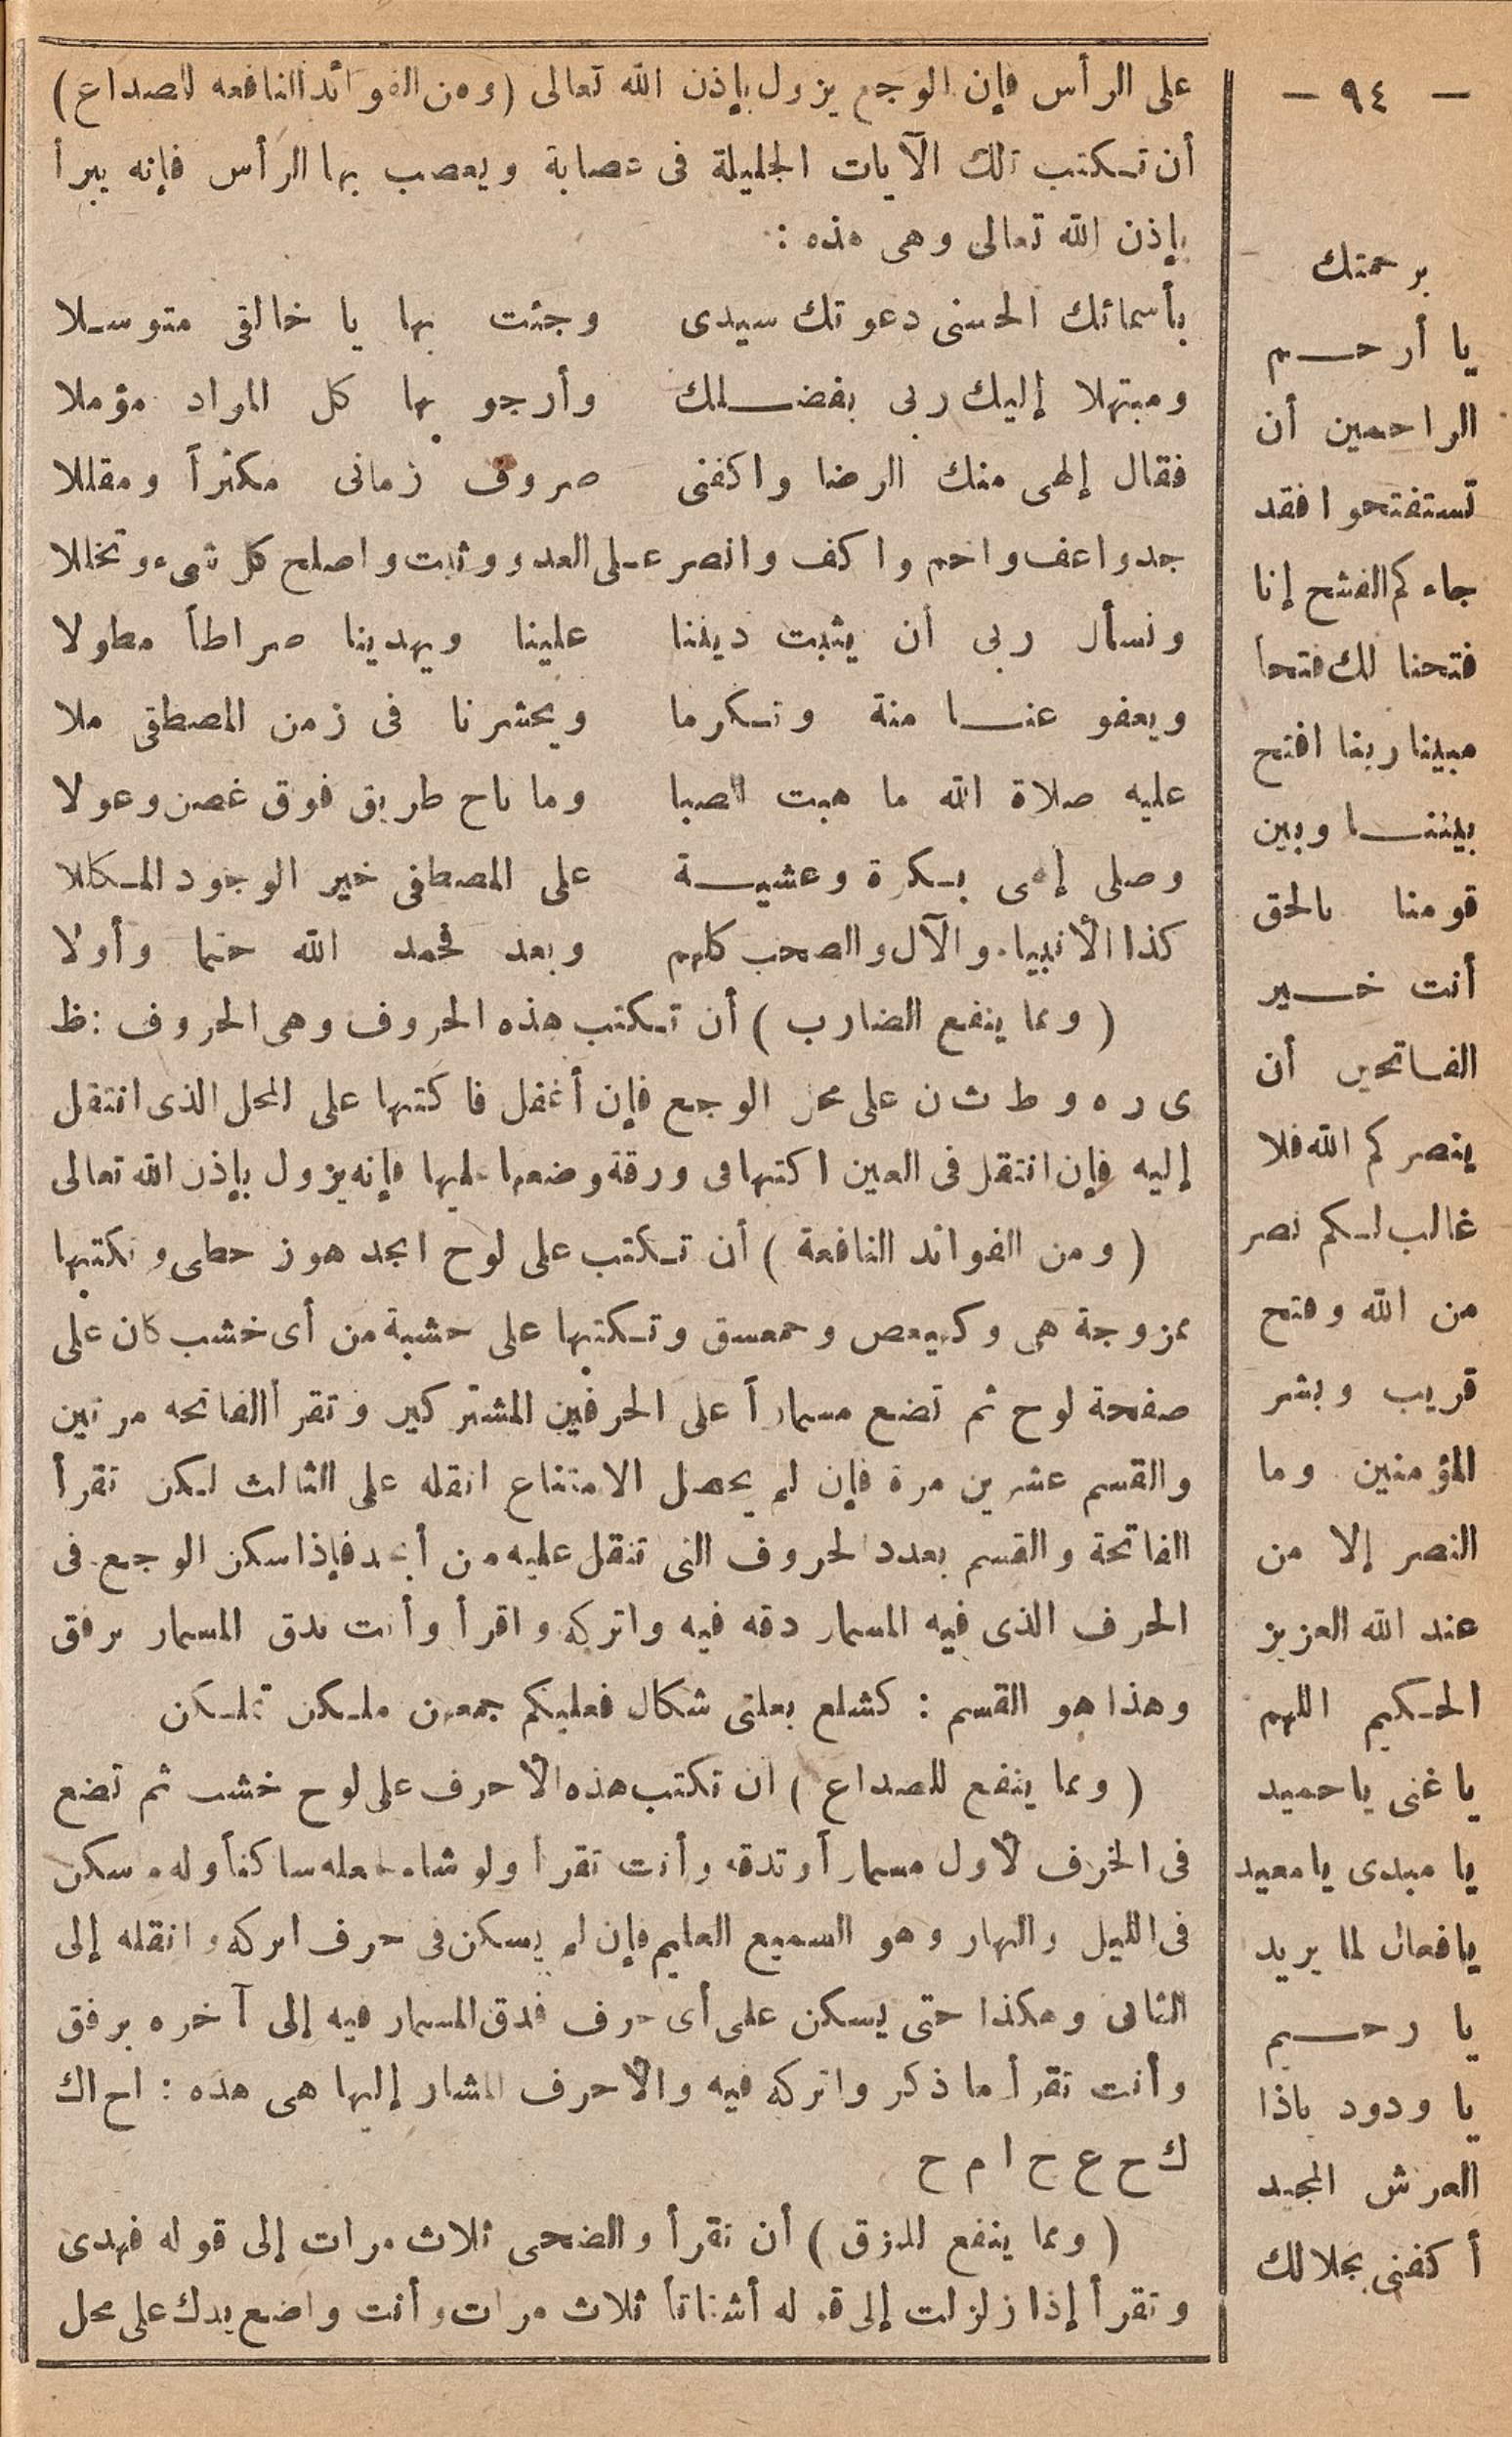 على الرأس فإن الوجع يزول بإذن الله تعالى (ومن الفوائد النافعه للصداع)
أن تـكتب تلك الآيات الجليلة فى عصابة ويعصب بها الرأس فإنه يبرأ
بإذن الله تعالى وهى هذه :
بأسمائك الحسنى دعوتك سيدى وجئت بها يا خالقى متوسـلا
ومبتهلا إليك ربى بفضـــلك وأرجو بها كل المراد مؤملا
فقال إلهى منك الرضا واكفنى صروف زمانى مكثراً ومقللا
جدواعف واحم واكف وانصر عـلى العدو وثبت واصلح كل شىء وتخللا
ونسأل ربى أن يثبت ديننا علينا ويهدينا صراطاً مطولا
ويعفو عنــا منة وتـكرما ويحشرنا فى زمن المصطفى ملا
عليه صلاة الله ما هبت الصبا وما ناح طريق فوق غصن وعولا
وصلى إلهى بـكرة وعشيــة على المصطفى خير الوجود المـكللا
كذا الأنبياء والآل والصحب كلهم وبعد فحمد الله ختما وأولا
( ومما ينفع الضارب ) أن تـكتب هذه الحروف وهى الحروف : ظ
ى ر ه و ط ث ن على محل الوجع فإن أغفل فاكتبها على المحل الذى انتقل
إليه فإن انتقل فى العين اكتبها فى ورقة وضعها عليها فإنه يزول بإذن الله تعالى
( ومن الفوائد النافعة ) أن تـكتب على لوح ابجد هوز حطى وتكتبها
ممزوجة هى وكهيعص وحمعسق وتـكتبها على خشبة من أى خشب كان على
صفحة لوح ثم تضع مسماراً على الحرفين المشتركين وتقرأ الفاتحه مرتين
والقسم عشرين مرة فإن لم يحصل الامتناع انقله على الثالث لـكن تقرأ
الفاتحة والقسم بعدد الحروف التى تنقل عليه من أبجد فإذا سكن الوجع فى
الحرف الذى فيه المسمار دقه فيه واتركه واقرأ وأنت تدق المسمار برفق
وهذا هو القسم : كشلع بعلنى شكال فعليكم جمعهن ملـكن تملـكن
( ومما ينفع للصداع ) ان تكتب هذه الأحرف على لوح خشب ثم تضع
فى الخرف لأول مسماراً وتدقه وأنت تقرأ ولو شاء لجعله ساكناً وله ما سكن
فى الليل والنهار وهو السميع العليم فإن لم يسكن فى حرف اتركه وانقله إلى
الثانى وهكذا حتى يسكن على أى حرف فدق المسمار فيه إلى آخره برفق
وأنت تقرأ ما ذكر واتركه فيه والأحرف المشار إليها هى هذه : اح اك
ك ح ع ح ا م ح
( ومما ينفع للرزق ) أن تقرأ والضحى ثلاث مرات إلى قوله فهدى
وتقرأ إذا زلزلت إلى قوله أشتاتاً ثلاث مرات وأنت واضع يدك على محل
– ٩٤ –
برحمتك
يا أرحـــم
الراحمين أن
تستفتحوا فقد
جاءكم الفتح إنا
فتحنا لك فتحاً
مبينا ربنا افتح
بيننــا وبين
قومنا بالحق
أنت خـــير
الفاتحين أن
ينصركم الله فلا
غالب لـكم نصر
من الله وفتح
قريب وبشر
المؤمنين وما
النصر إلا من
عند الله العزيز
الحـكيم اللهم
يا غنى يا حميد
يا مبدى يا معيد
يا فعال لما يريد
يا رحـــيم
يا ودود ياذا
العرش المجيد
أكفنى بجلالك